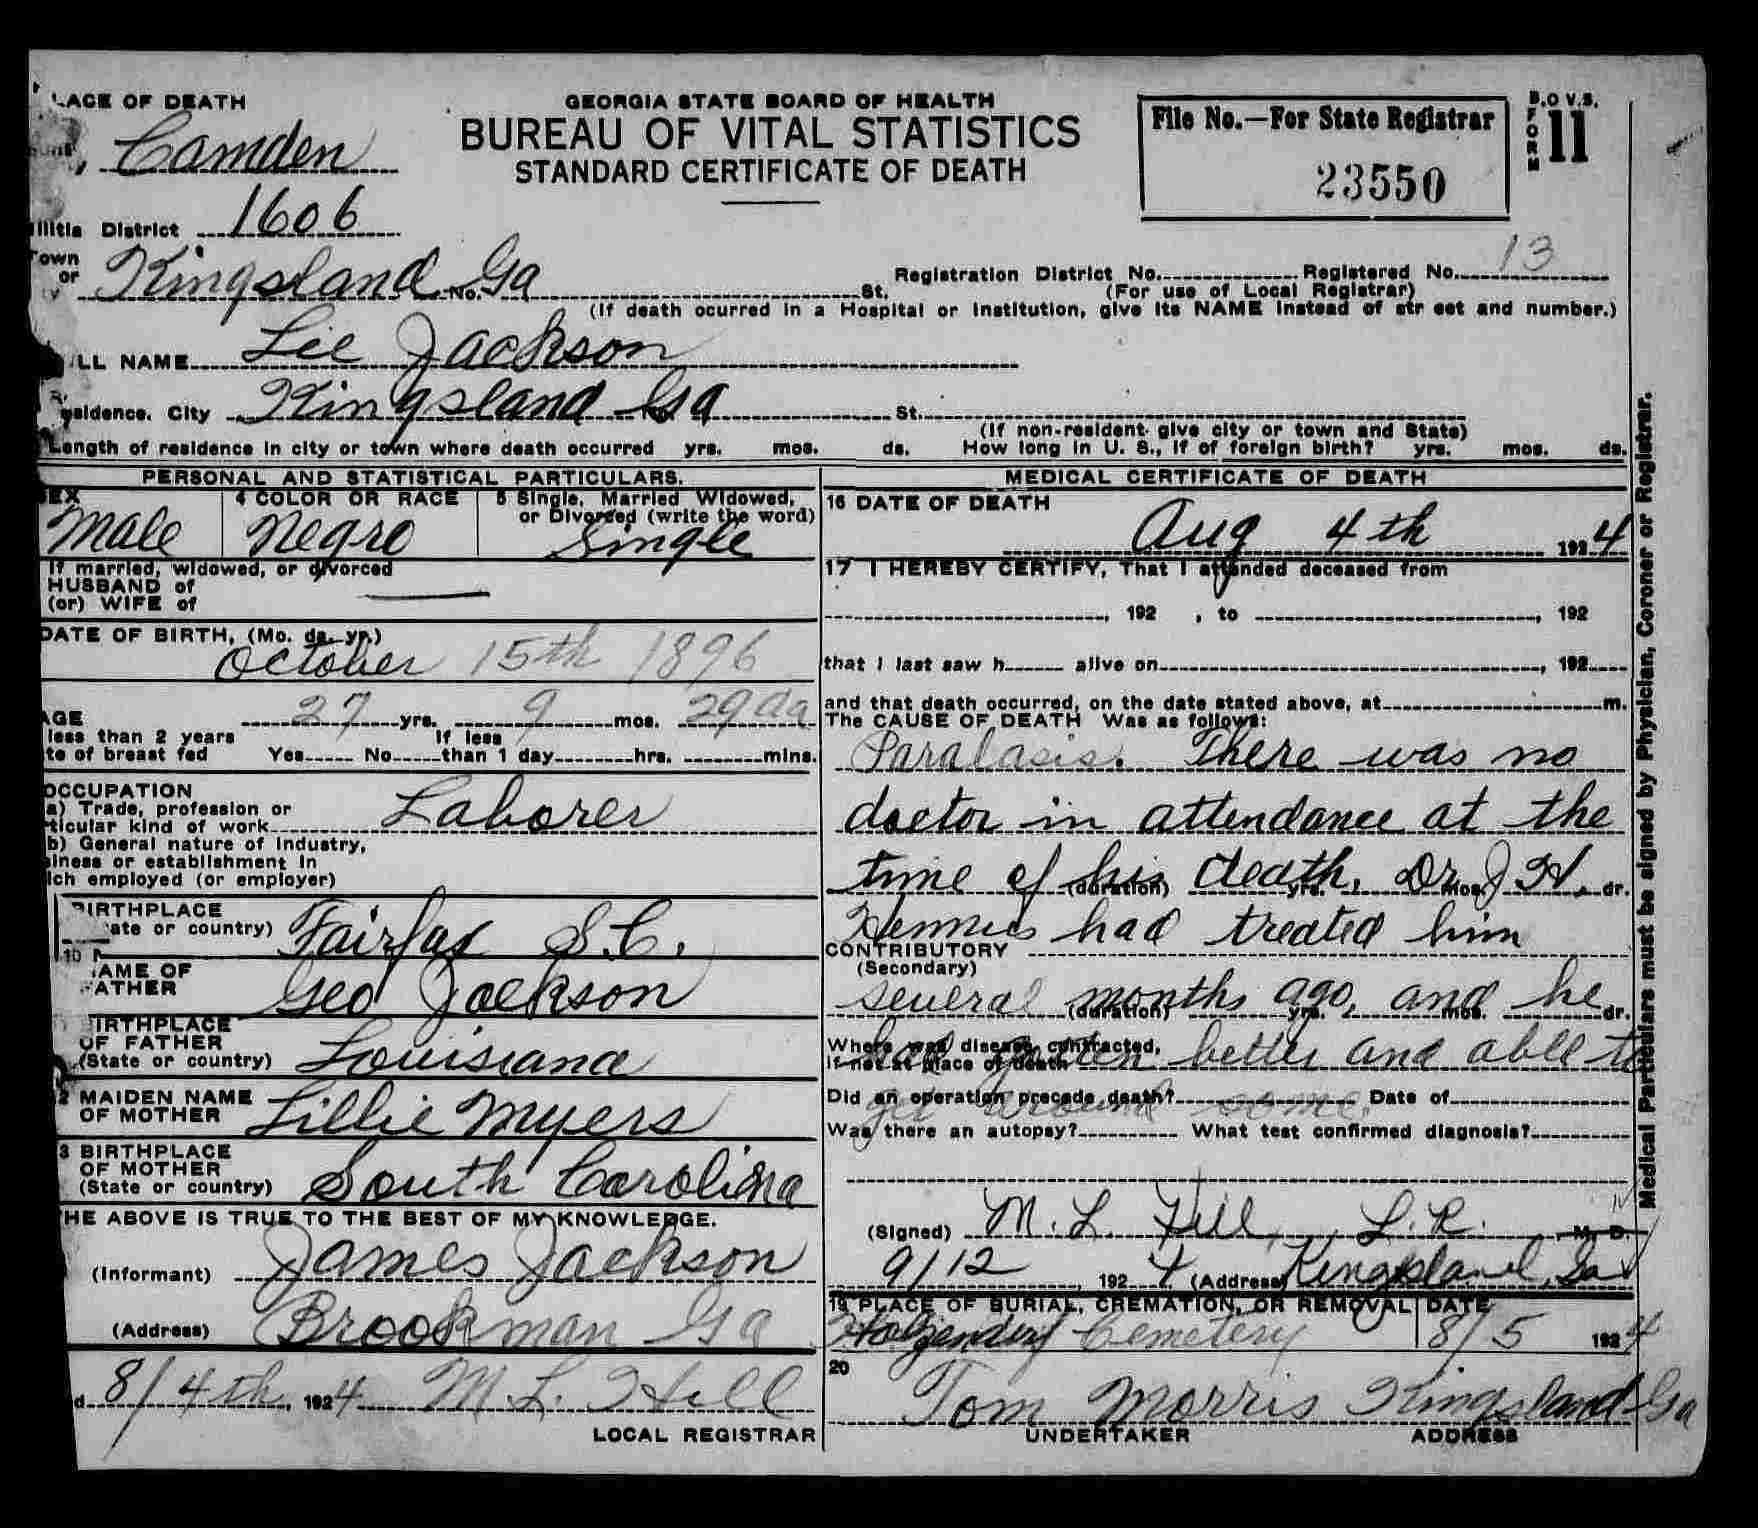 LACE OF DEATH
GEORGIA STATE BOARD OF HEALTH
BUREAU OF VITAL STATISTICS
STANDARD CERTIFICATE OF DEATH
File No.—For State Registrar
23550
B.O V.S.
FORM 11
Camden
ilitia District 1606
own
or Kingsland Ga
No. St.
Registration District No. Registered No. 13
(For use of Local Registrar)
(If death ocurred in a Hospital or Institution, give its NAME instead of str eet and number.)
LL NAME Lee Jackson
esidence. City Kingsland Ga St.
(If non-resident give city or town and State)
Length of residence in city or town where death occurred yrs. mos. ds. How long in U. S., if of foreign birth? yrs. mos. ds.
PERSONAL AND STATISTICAL PARTICULARS.
SEX
Male
4 COLOR OR RACE
Negro
5 Single, Married Widowed,
or Divorced (write the word)
Single
If married, widowed, or divorced
HUSBAND of
(or) WIFE of
DATE OF BIRTH, (Mo. da. yr.)
October 15th 1896
AGE 27 yrs. 9 mos. 29
less than 2 years If less
te of breast fed Yes No than 1 day hrs. mins.
OCCUPATION
a) Trade, profession or
ticular kind of work Laborer
b) General nature of Industry,
siness or establishment in
ich employed (or employer)
BIRTHPLACE
ate or country) Fairfax S.C.
10 N
AME OF
FATHER Geo Jackson
IRTHPLACE
OF FATHER
(State or country) Louisiana
2 MAIDEN NAME
OF MOTHER Lillie Myers
3 BIRTHPLACE
OF MOTHER
(State or country) South Carolina
HE ABOVE IS TRUE TO THE BEST OF MY KNOWLEDGE.
(Informant) James Jackson
(Address) Brookman Ga
d 8/4th, 1924 M. L. Hill
LOCAL REGISTRAR
MEDICAL CERTIFICATE OF DEATH
16 DATE OF DEATH
Aug 4th 1924
17 I HEREBY CERTIFY, That I attended deceased from
, 192 , to , 192
that I last saw h alive on , 192
and that death occurred, on the date stated above, at m.
The CAUSE OF DEATH Was as follows:
Paralasis. There was no
doctor in attendance at the
time of his death, Dr. J H.
(duration) yrs. mos. dr.
had treated him
CONTRIBUTORY
(Secondary)
several months ago, and he
(duration) yrs. mos. dr.
Where was disease contracted,
if not at place of death
had gotten better and able to
Did an operation precede death? Date of
get around some.
Was there an autopsy? What test confirmed diagnosis?
(Signed) M. L. Hill, L. R. M. D.
9/12, 1924 (Address) Kingsland, Ga
19 PLACE OF BURIAL, CREMATION, OR REMOVAL DATE
Holzendorf Cemetery 8/5 1924
20
Tom Morris Kingsland Ga
UNDERTAKER ADDRESS
Medical Particulars must be signed by Physician, Coroner or Registrar.